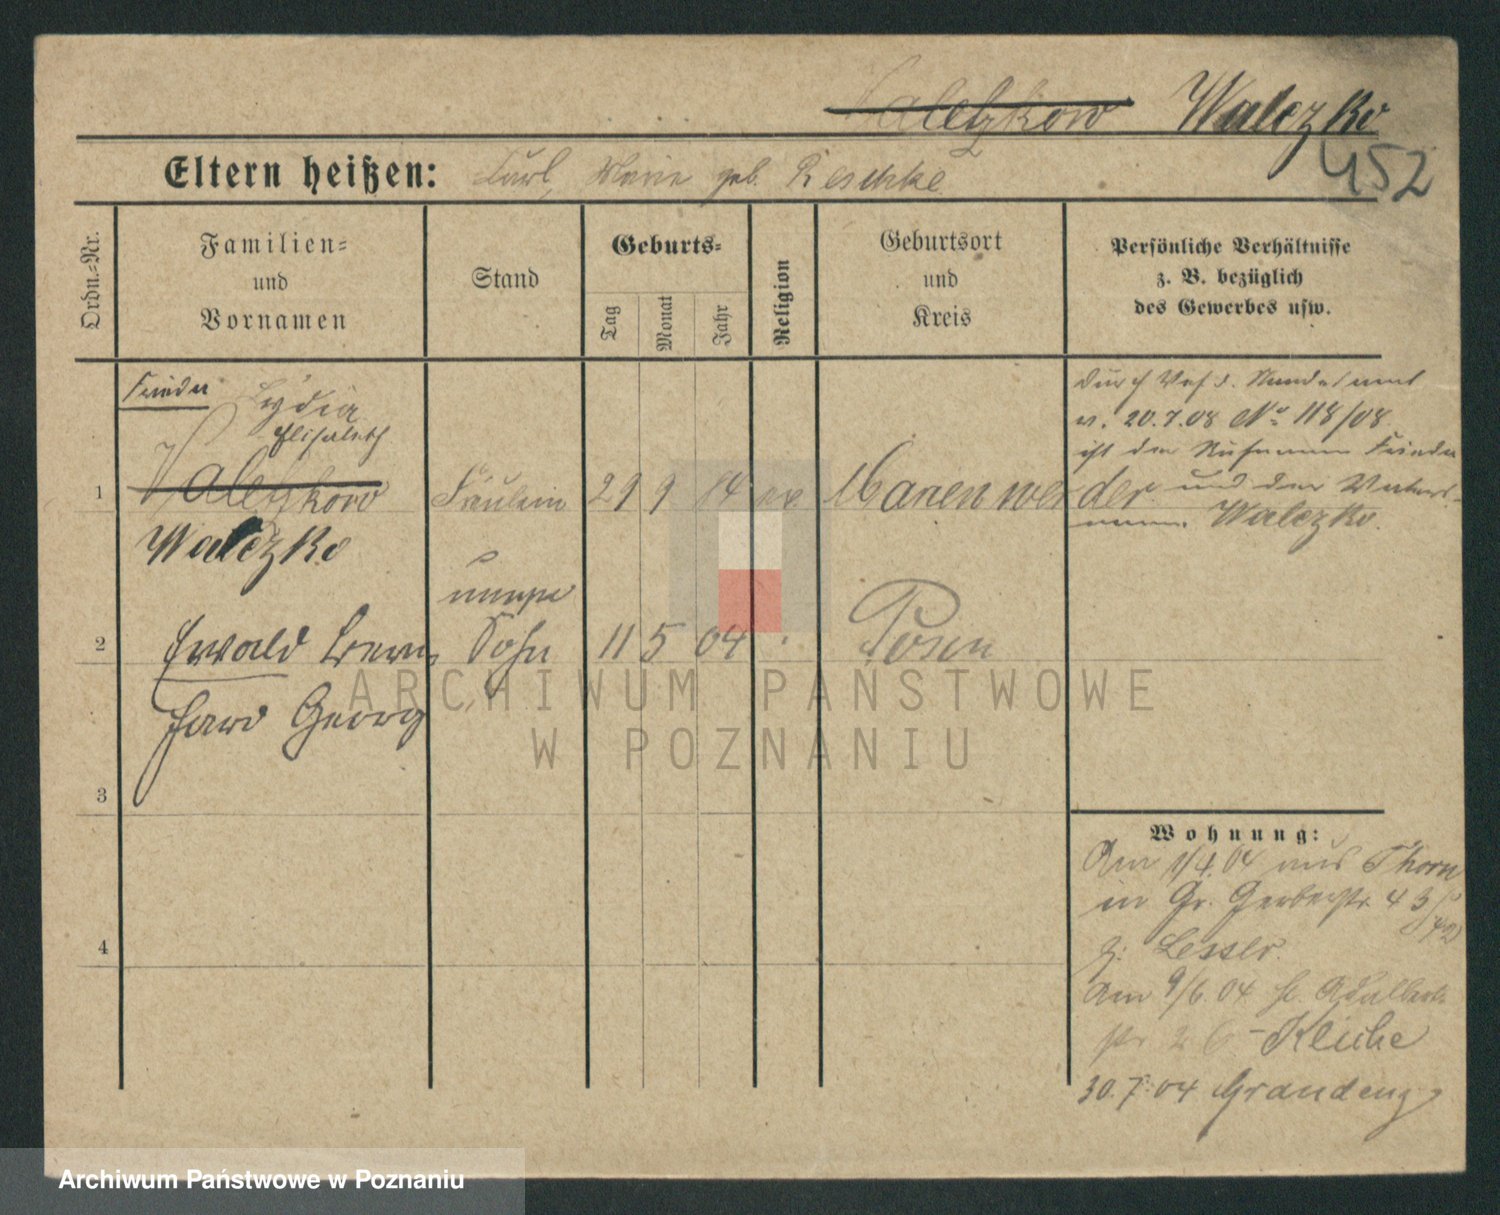 Waletzkow Walezko
452
Eltern heißen: Carl, Marie geb. Reschke
Ordn.-Nr.
Familien-
und
Vornamen
Stand
Geburts-
Tag
Monat
Jahr
Religion
Geburtsort
und
Kreis
Persönliche Verhältnisse
z. B. bezüglich
des Gewerbes usw.
Frieda Lydia
Elisabeth
1 Waletzkow Fräulein 29 9 84 ev. Marienwerder
Walezko
durch Verf. d. Standesamt
v. 20.7.08 No 118/08
ist der Rufname Frieda
und der Vaters-
name Walezko.
unehe
2 Ewald Bern- Sohn 11 5 04 Posen
hard Georg
3
4
Wohnung:
Am 1/4.04 aus Thorn
in Gr. Gerberstr. 43
b. Lesser.
Am 9/6.04 St. Adalbert-
str 26 - Kliche
30.7.04 Graudenz
ARCHIWUM PAŃSTWOWE
W POZNANIU
Archiwum Państwowe w Poznaniu